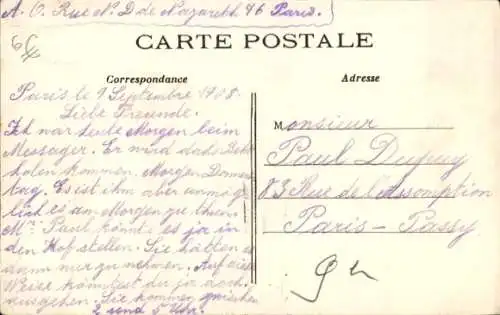 A. O. Rue N. D de Nazareth 46 Paris.
CARTE POSTALE
Correspondance
Adresse
Paris le 9 Septembre 1908.
Liebe Freunde.
Ich war heute Morgen beim
Messager. Er wird das
holen kommen. Morgen Donners
tag. Es ist ihm aber unmög
lich es am Morgen zu thun.
Mr. Paul könnt es ja in
den Hof stellen. Sie hätten es
dann nur zu nehmen. Auf diese
Weise könntest du ja noch
ausgehen. Sie kommen zwischen
2 und 5 Uhr.
Monsieur
Paul Dupuy
83 Rue de l'Assomption
Paris-Passy